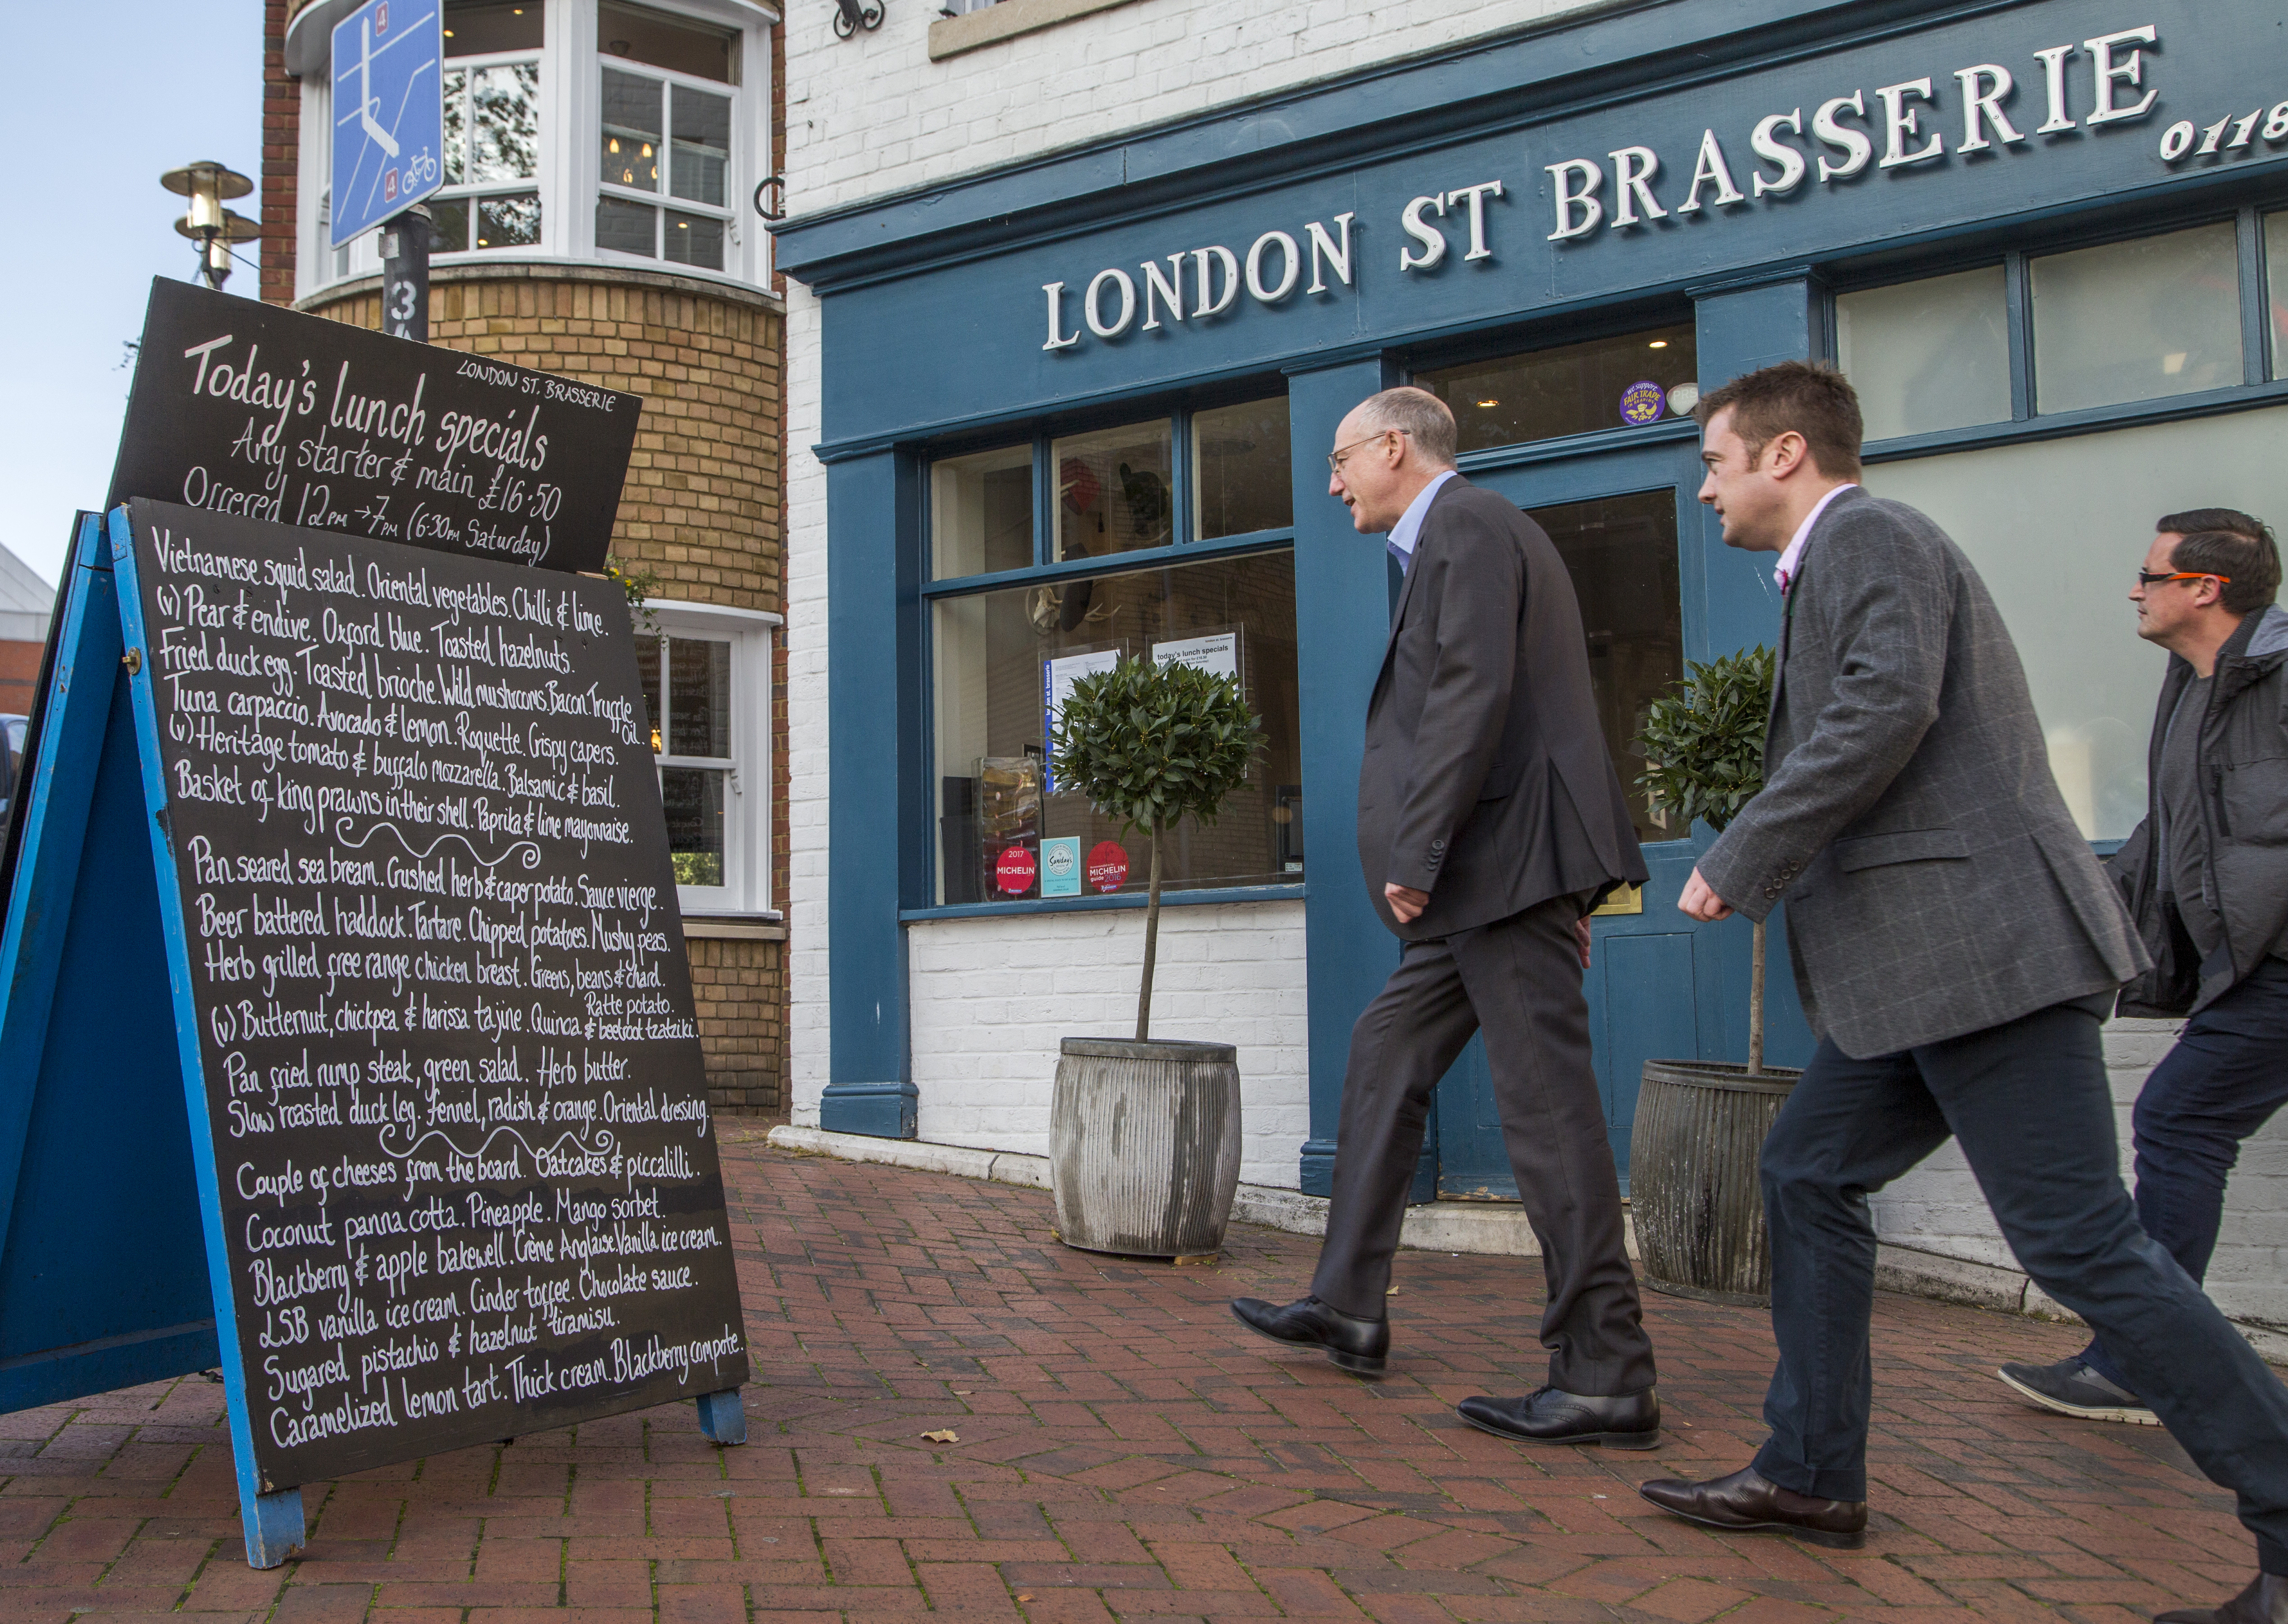 4
4
3
LONDON ST. BRASSERIE
Today's lunch specials
Any starter & main £16.50
Offered 12pm → 7pm (6:30pm Saturday)
Vietnamese squid salad. Oriental vegetables. Chilli & lime.
(v) Pear & endive. Oxford blue. Toasted hazelnuts.
Fried duck egg. Toasted brioche. Wild mushrooms. Bacon. Truffle
Oil.
Tuna carpaccio. Avocado & lemon. Roquette. Crispy capers.
(v) Heritage tomato & buffalo mozzarella. Balsamic & basil.
Basket of king prawns in their shell. Paprika & lime mayonnaise.
Pan seared sea bream. Crushed herb & caper potato. Sauce vierge.
Beer battered haddock. Tartare. Chipped potatoes. Mushy peas.
Herb grilled free range chicken breast. Greens, beans & chard.
Ratte potato.
(v) Butternut, chickpea & harissa tajine. Quinoa & beetroot tzatziki.
Pan fried rump steak, green salad. Herb butter.
Slow roasted duck leg. Fennel, radish & orange. Oriental dressing.
Couple of cheeses from the board. Oatcakes & piccalilli.
Coconut panna cotta. Pineapple. Mango sorbet.
Blackberry & apple bakewell. Crème Anglaise. Vanilla ice cream.
LSB vanilla ice cream. Cinder toffee. Chocolate sauce.
Sugared pistachio & hazelnut "tiramisu.
Caramelized lemon tart. Thick cream. Blackberry compote.
LONDON ST BRASSERIE
0118
we support
FAIR TRADE
PRS
today's lunch specials
2017
MICHELIN
MICHELIN
guide 2016